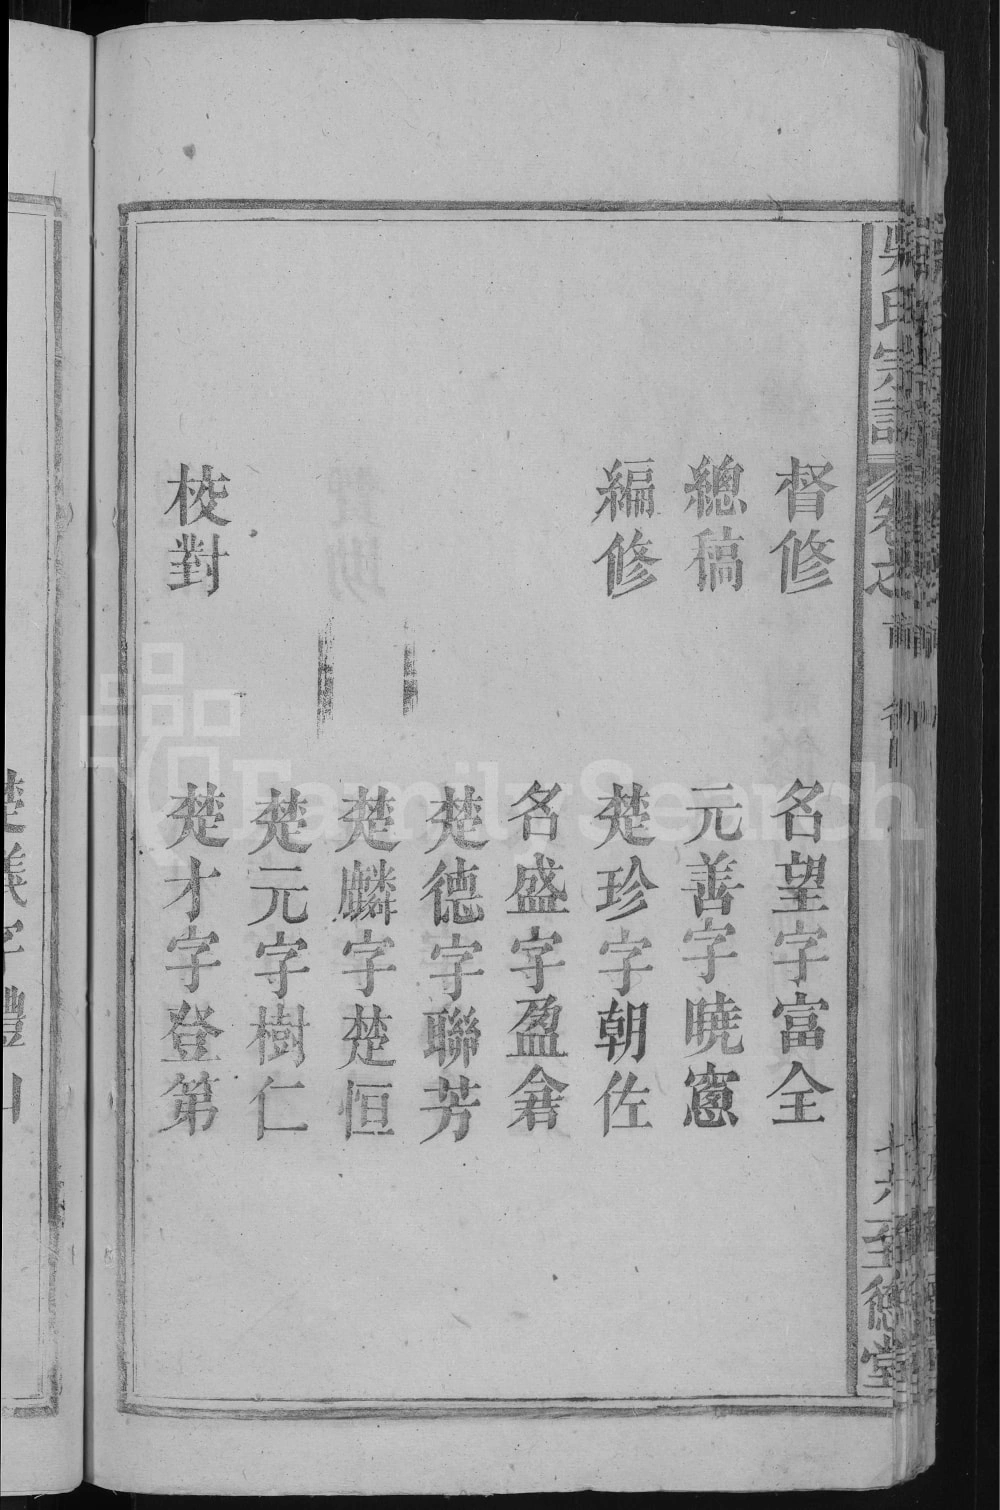 吳氏宗譜 卷之首
十六 至德堂
督修 名望字富全
總稿 元善字曉窻
編修 楚珍字朝佐
名盛字盈畣
楚德字聯芳
楚麟字楚恒
楚元字樹仁
校對 楚才字登第
楚義字禮
FamilySearch